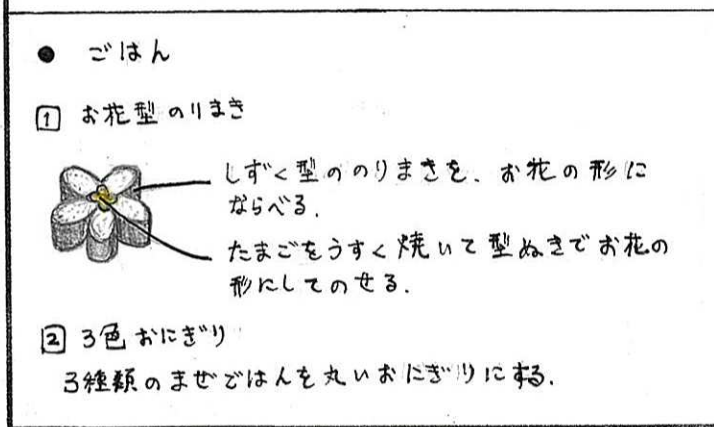 ● ごはん
1 お花型のりまき
しずく型ののりまきを、お花の形に
ならべる.
たまごをうすく焼いて型ぬきでお花の
形にしてのせる.
2 3色おにぎり
3種類のまぜごはんを丸いおにぎりにする.